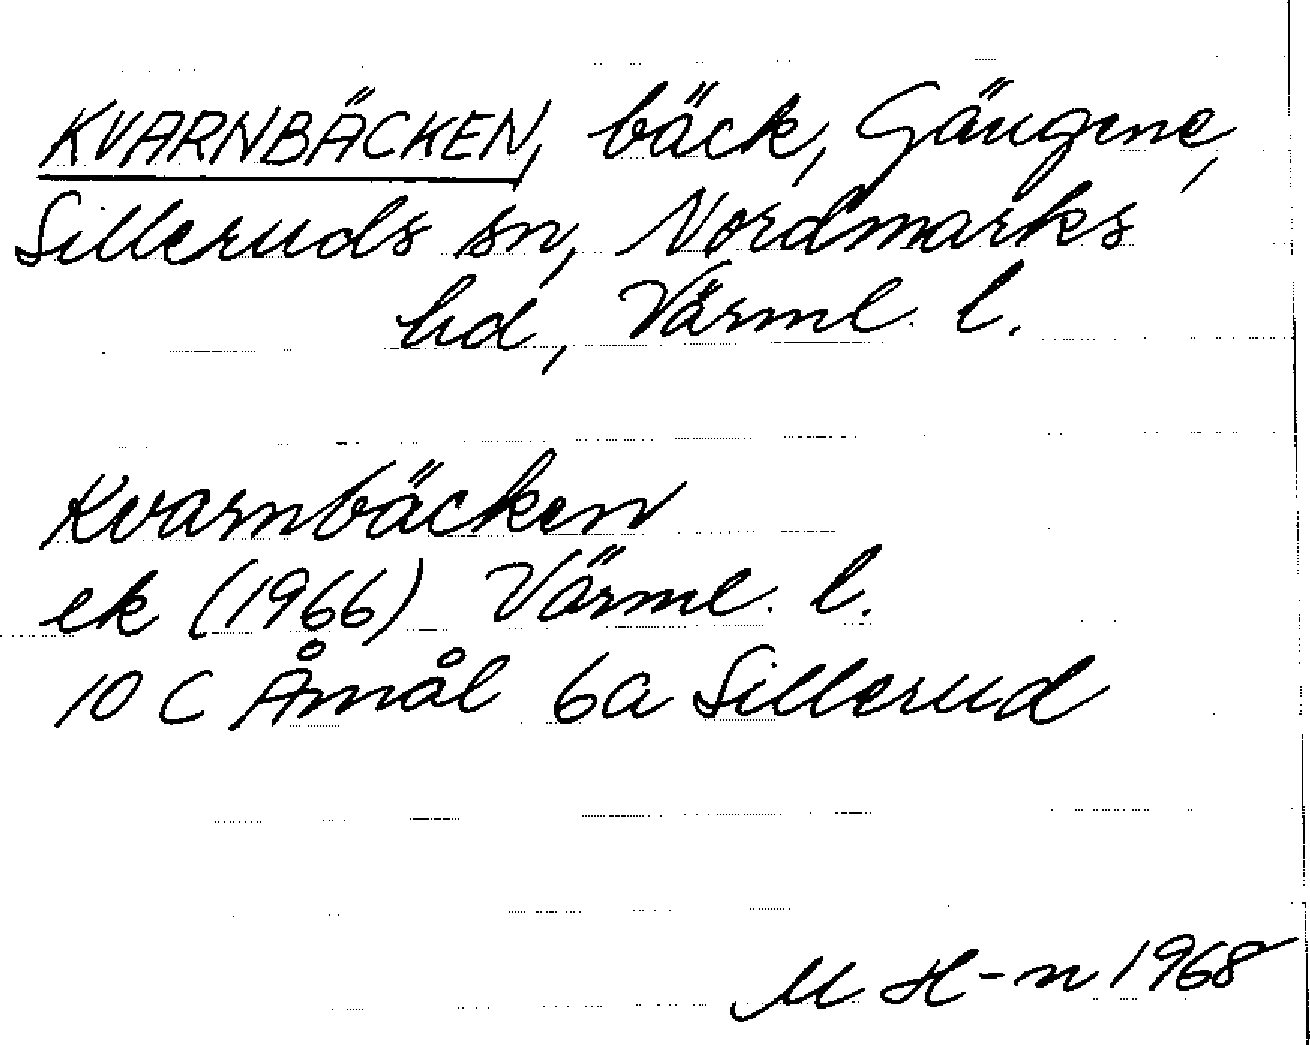 KVARNBÄCKEN, bäck, Gängene,
Silleruds sn, Nordmarks
hd, Värml. l.
Kvarnbäcken
ek (1966) Värml. l.
10 C Åmål 6a Sillerud
M H-n 1968